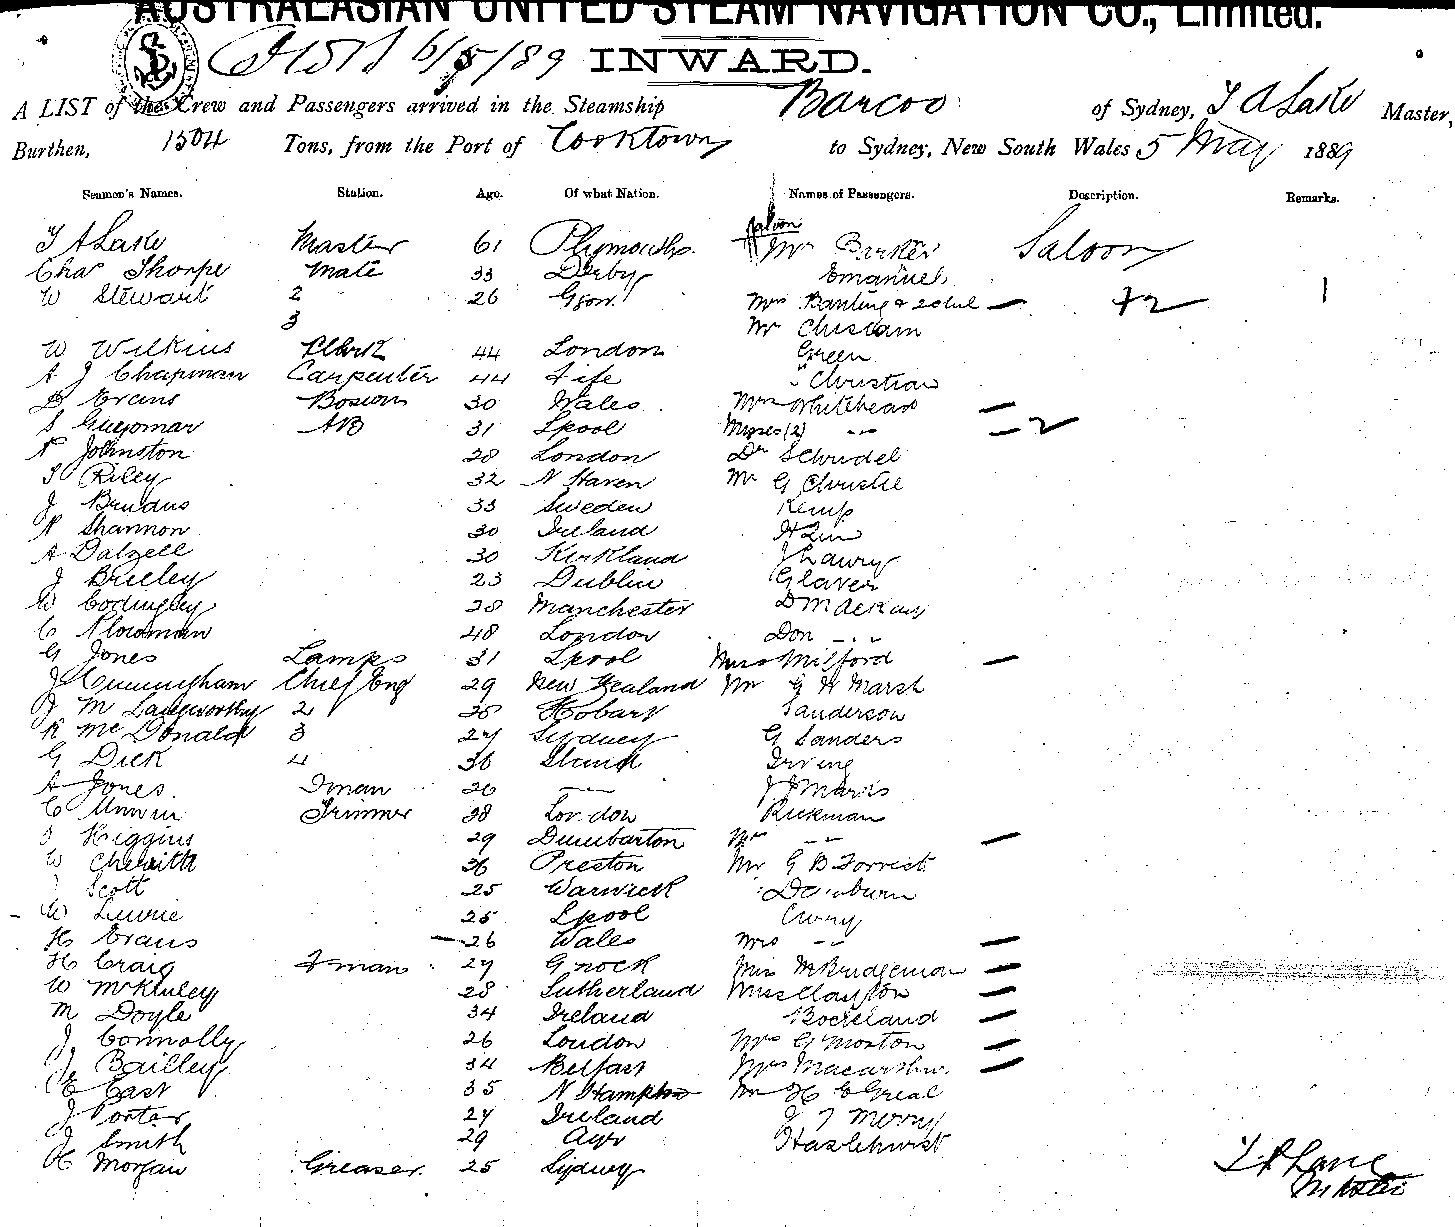 AUSTRALASIAN UNITED STEAM NAVIGATION CO., Limited.
6/5/89 INWARD.
A LIST of the Crew and Passengers arrived in the Steamship Barcoo of Sydney, T A Lake Master,
Burthen, 1504 Tons, from the Port of Cooktown to Sydney, New South Wales 5 May 1889
Seamen's Names. Station. Age. Of what Nation. Names of Passengers. Description. Remarks.
Saloon
T A Lake Master 61 Plymouth Mr Barker Saloon
Chas Thorpe Mate 33 Derby Emanuel
W Stewart 2 26 Gsow Mrs Banting & 2 chil — 72 1
3 Mr Chisolm
W Wilkins Clerk 44 London Green
A J Chapman Carpenter 44 Fife " Christian
D Evans Bosun 30 Wales Mrs Whitehead —
S Guyomar AB 31 Lpool Misses (2) - - — 2
Johnston 28 London Dr
T Riley 32 N Haven Mr G Christie
J Brudus 33 Sweden Kemp
Shannon 30 Ireland
A Dalzell 30 Kirkland J Lawry
J Brieley 23 Dublin Glaver
W Codingley 28 Manchester D Mackay
C Plowman 48 London Don - - -
G Jones Lamps 31 Lpool Miss Milford —
J Cunningham Chief Eng 29 New Zealand Mr G W Marsh
J M Langworthy 2 28 Hobart Sanderson
R McDonald 3 27 Sydney G Sanders
G Dick 4 36 Irving
A Jones Fman 26 — J Marks
C Unwin Trimmer 28 London Rickman
Higgins 29 Dumbarton Mrs - - —
W 26 Preston Mr G B Forrest
Scott 25 Warwick
W Lurie 25 Lpool
H Evans 26 Wales Mrs - - —
H Craig Fman 27 Gnock Miss M Bridgeman —
W McKinley 28 Sutherland Miss Clayton —
M Doyle 34 Ireland —
J Connolly 26 London Mrs G Moston —
J Bailley 34 Belfast Mrs Macarthur —
E East 35 N Hampton Mr H C
J Porter 27 Ireland J T Merry
J Smith 29 Ayr Hazlehurst
H Morgan Greaser 25 Sydney
T A Lake
Master